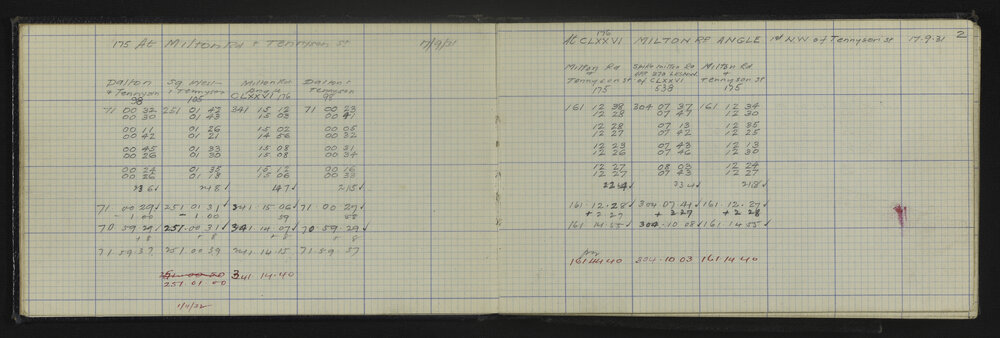 175 At Milton Rd & Tennyson St 17/9/31
Dalton Sq Milton Rd Dalton &
& Tennyson & Tennyson Angle Tennyson
98 105 CLXXVI 176 98
71 00 32 251 01 42 341 15 12 71 00 23
00 30 01 43 15 03 00 41
00 11 01 26 15 02 00 05
00 42 01 21 14 56 00 32
00 45 01 33 15 08 00 31
00 26 01 30 15 08 00 34
00 24 01 38 15 12 00 16
00 26 01 18 15 06 00 33
236✓ 248✓ 147✓ 215✓
71 00 29✓ 251 01 31✓ 341 15 06✓ 71 00 27✓
- 1 00 - 1.00 59 58
70 59 29✓ 251.00 31✓ 341 14 07✓ 70 59.29✓
+8 +8 +8 +8
71.59.37 251.00 39 341 14.15 71.59.37
251 00 50 341.14.40
251.01 00
1/11/32
176
At CLXXVI MILTON RD ANGLE 1st N.W of Tennyson St 17.9.31 2
Milton Rd Spike Milton Rd Milton Rd
& &
Tennyson St of CLXXVI Tennyson St
175 538 175
161 12 38 304 07 37 161 12 34
12 28 07 47 12 30
12 28 07 13 12 35
12 27 07 42 12 25
12 23 07 43 12 13
12 26 07 46 12 30
12 27 08 03 12 24
12 27 07 43 12 27
224✓ 334✓ 218✓
161.12.28✓ 304 07 41✓ 161.12.27✓
+2 27 +2 27 +2 28
161 14 55✓ 304.10 08✓ 161.14.55✓
161 14 40 304.10 03 161.14.40